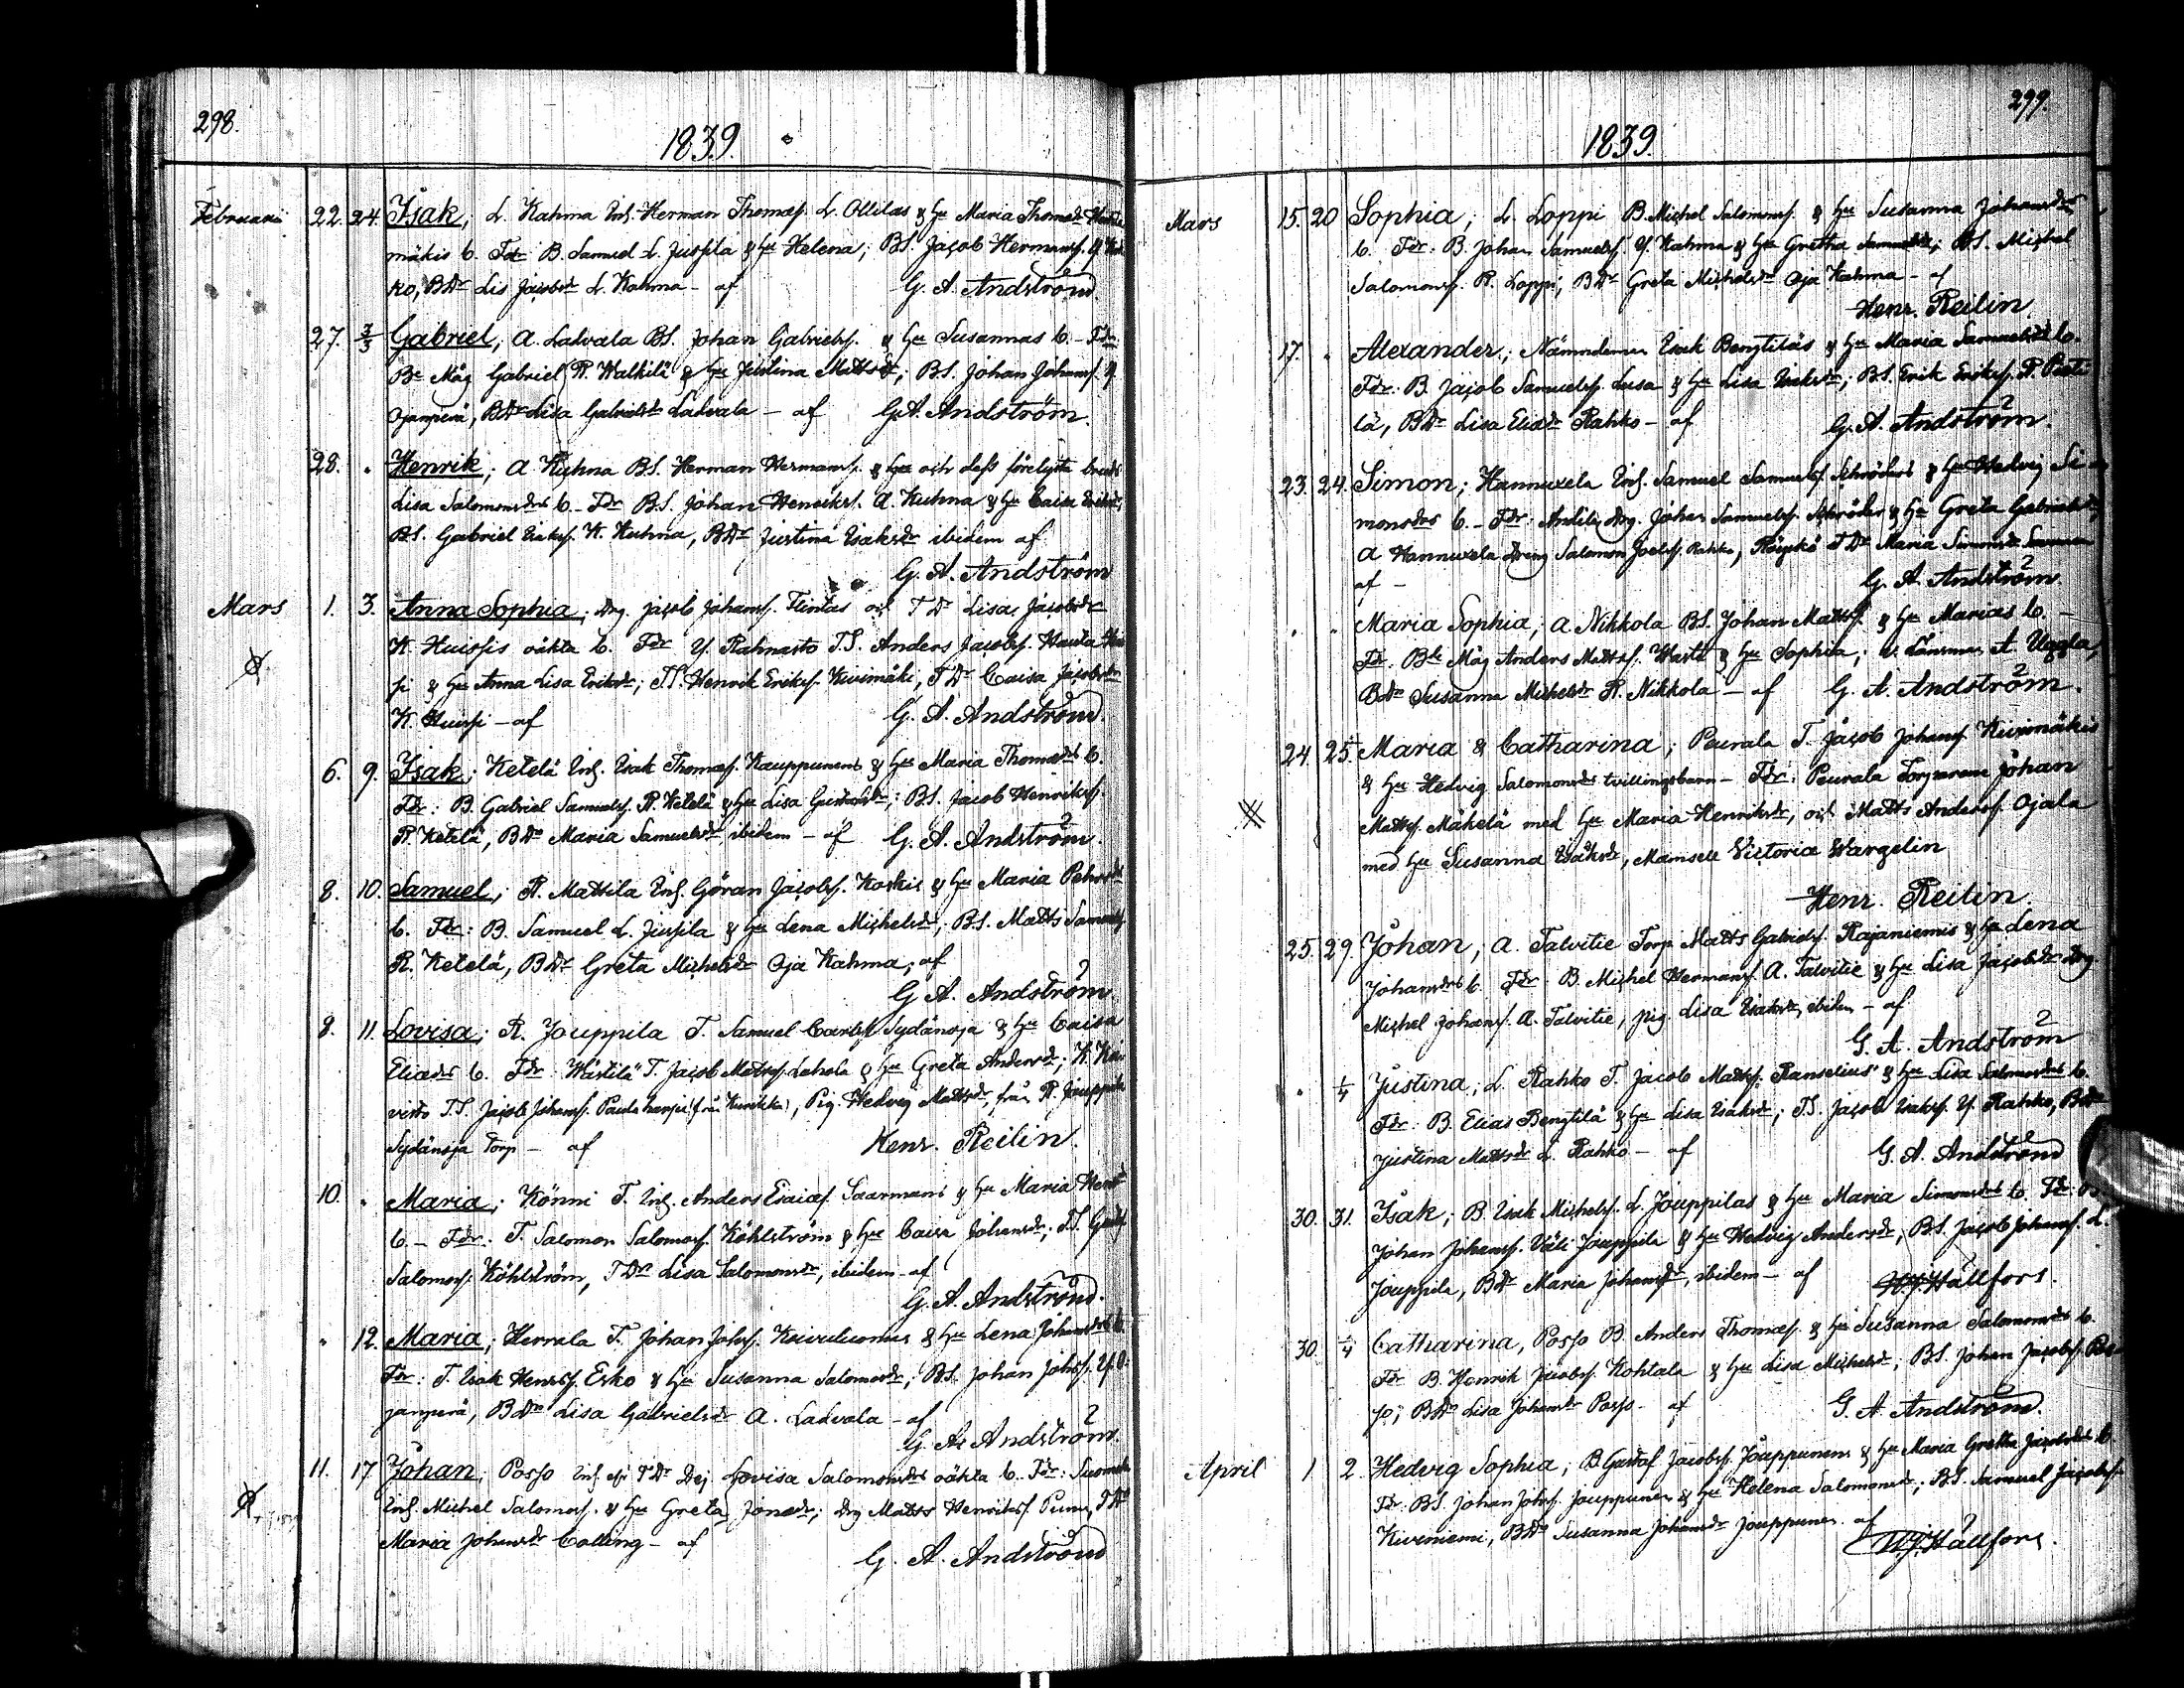 298.
1839.
Februarii 22. 24. Isak; L. Kahma Inh. Herman Thomæss. L. Ollilas & Hu Maria Thomædr
mäkis b. Fdr B. Samuel L. Jussila & Hu Helena; BS. Jacob Hermanss. Y.
ko, BDr Lis Jacobsdr L. Kahma - af G. A. Andström
27. 3/3 Gabriel; A. Ladvala BS. Johan Gabrielss. & Hu Susannas b. - Fdr
Be Måg Gabriel R. Walkila & Hu Justina Mattsdr; BS. Johan Johanss. Y.
Ojanperä, BDr Lisa Gabrielsdr Ladvala - af G. A. Andström.
28. " Henrik; A Kuhna BS. Herman Hermanss. & Hu och dess förelyste
Lisa Salomonsdrs b. - Fdr BS. Johan Henrikss. A. Kuhna & Hu Caisa
BS. Gabriel Isakss. K. Kuhna, BDr Justina Isaksdr ibidem af
G. A. Andström
Mars 1. 3. Anna Sophia; Drg. Jacob Johanss. Flintas och TDr Lisa Jacobsdr
K. Huissis oäkta b. Fdr Y. Rahnasto T.S. Anders Jacobss. Hauta
si & Hu Anna Lisa Eriksdr; TS. Henrik Erikss. Kivimäki, TDr Caisa Jacobsdr
K. Huissi - af G. A. Andström
6. 9. Isak; Ketelä Inh. Isak Thomæss. Kauppinens & Hu Maria Thomædrs b.
Fdr: B. Gabriel Samuelss. R. Ketelä & Hu Lisa Gustafsdr; BS. Jacob Henrikss.
R. Ketelä, BDr Maria Samuelsdr ibidem - af G. A. Andström.
8. 10. Samuel; R. Mattila Inh. Göran Jacobss. Koskis & Hu Maria Pehrsdrs
b. Fdr: B. Samuel L. Jussila & Hu Lena Michelsdr; BS. Matts Samuelss.
R. Ketelä, BDr Greta Michelsdr Oja Kahma, af
G. A. Andström
8. 11. Lovisa; R. Jouppila T. Samuel Carlss. Sydänoja & Hu Caisa
Eliædrs b. Fdr Wästilä T. Jacob Mattss. Lahola & Hu Greta Andersdr; K. Koi
visto T.S. Jacob Johanss. Paulaharju (från Kurikka), Pig. Hedvig Mattsdr, från R. Jouppila
Sydänoja Torp - af Henr. Reilin.
10. " Maria; Könni T. Inh. Anders Esaiæs. Saarmans & Hu Maria
b. - Fdr: T. Salomon Salomonss. Köhlström & Hu Caisa Johansdr; TS. Gust.
Salomonss. Köhlström, TDr Lisa Salomonsdr, ibidem - af
G. A. Andström.
" 12. Maria; Herrala T. Johan Johss. Koivuluomas & Hu Lena Johansdrs b.
Fdr: T. Isak Henrss. Esko & Hu Susanna Salomonsdr; BS. Johan Johss. Y. O-
janperä, BDr Lisa Gabrielsdr A. Ladvala - af
G. A. Andström.
11. 17 Johan; Posso Inh. TDr Dej Lovisa Salomonsdrs oäkta b. Fdr: Suomela
Inh. Michel Salomonss. & Hu Greta Jonædr; Drg Matts Henrikss. TDr
Maria Johansdr Colling - af
G. A. Andström
299.
1839.
Mars 15. 20 Sophia; L. Loppi B. Michel Salomonss. & Hu Susanna Johansdrs
b. Fdr: B. Johan Samuelss. Y. Kahma & Hu Gretha Samuelsdr; BS. Michel
Salomonss. R. Loppi; BDr Greta Michelsdr Oja Kahma - af
Henr. Reilin
17. " Alexander; Nämndeman Isak Bengtiläs & Hu Maria Samuelsdrs b.
Fdr: B. Jacob Samuelss. Lusa & Hu Lisa Isaksdr; BS. Erik Erikss. R. Perti-
lä, BDr Lisa Eliædr Rahko - af G. A. Andström.
23. 24. Simon; Hannuxela Inh. Samuel Samuelss. Schröders & Hu Hedvig Si-
monsdrs b. - Fdr: Drg. Johan Samuelss. Schröder & Hu Greta Gabrielsdr
A Hannuxela Dreng Salomon Joelss. Rahko, Röyskö TDr Maria Simonsdr
af - G. A. Andström
" " Maria Sophia; A Nikkola BS. Johan Mattss. & Hu Marias b. -
Fdr: Bde Måg Anders Mattss. Wasti & Hu Sophia; v. Länsman A. Uggla,
BDr Susanna Michelsdr R. Nikkola - af G. A. Andström.
24. 25. Maria & Catharina; Peurala T. Jacob Johanss Kivimäkis
& Hu Hedvig Salomonsdrs tvillingsbarn - Fdr: Peurala Torparene Johan
Mattss. Mäkelä med Hu Maria Henriksdr, och Matts Anderss. Ojala
med Hu Susanna Isaksdr, Mamsell Victoria Wargelin
Henr. Reilin
25. 29. Johan; A. Talvitie Torp. Matts Gabrielss. Rajaniemis & Hu Lena
Johansdrs b. Fdr: B. Michel Hermanss. A. Talvitie & Hu Lisa Jacobsdr Drg
Michel Johanss. A. Talvitie, pig. Lisa Isaksdr, ibidem - af
G. A. Andström
" 1/4 Justina; L. Rahko T. Jacob Mattss. Ranselius & Hu Lisa Salomonsdrs b.
Fdr: B. Elias Bengtilä & Hu Lisa Isaksdr; TS. Jacob Isakss. Y. Rahko, BDr
Justina Mattsdr L. Rahko - af G. A. Andström
30. 31. Isak; B. Isak Michelss. L. Jouppilas & Hu Maria Simonsdrs b. Fdr: B.
Johan Johanss. Väli Jouppila & Hu Hedvig Andersdr; BS. Jacob Johanss. L.
Jouppila, BDr Maria Johansdr, ibidem - af W. J. Hällfors.
30. 1/4 Catharina, Posso B. Anders Thomæss. & Hu Susanna Salomonsdrs b.
Fdr B. Henrik Jacobss. Kohtala & Hu Lisa Michelsdr; BS. Johan Jacobss. Pos-
so; BDr Lisa Johansdr Posso - af G. A. Andström.
April 1 2. Hedvig Sophia; B. Gustaf Jacobss. Jouppunens & Hu Maria Gretha Jacobsdrs b.
Fdr: BS. Johan Johss. Jouppunen & Hu Helena Salomonsdr; BS. Samuel Jacobss.
Kiviniemi, BDr Susanna Johansdr Jouppunen - af
W. J. Hällfors.